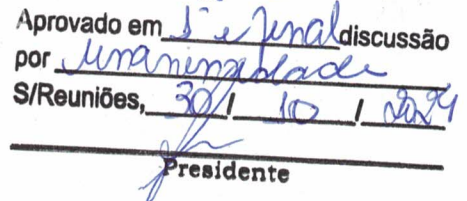 Aprovado em 1ª e final discussão
por unanimidade
S/Reuniões, 30 / 10 / 2024
Presidente